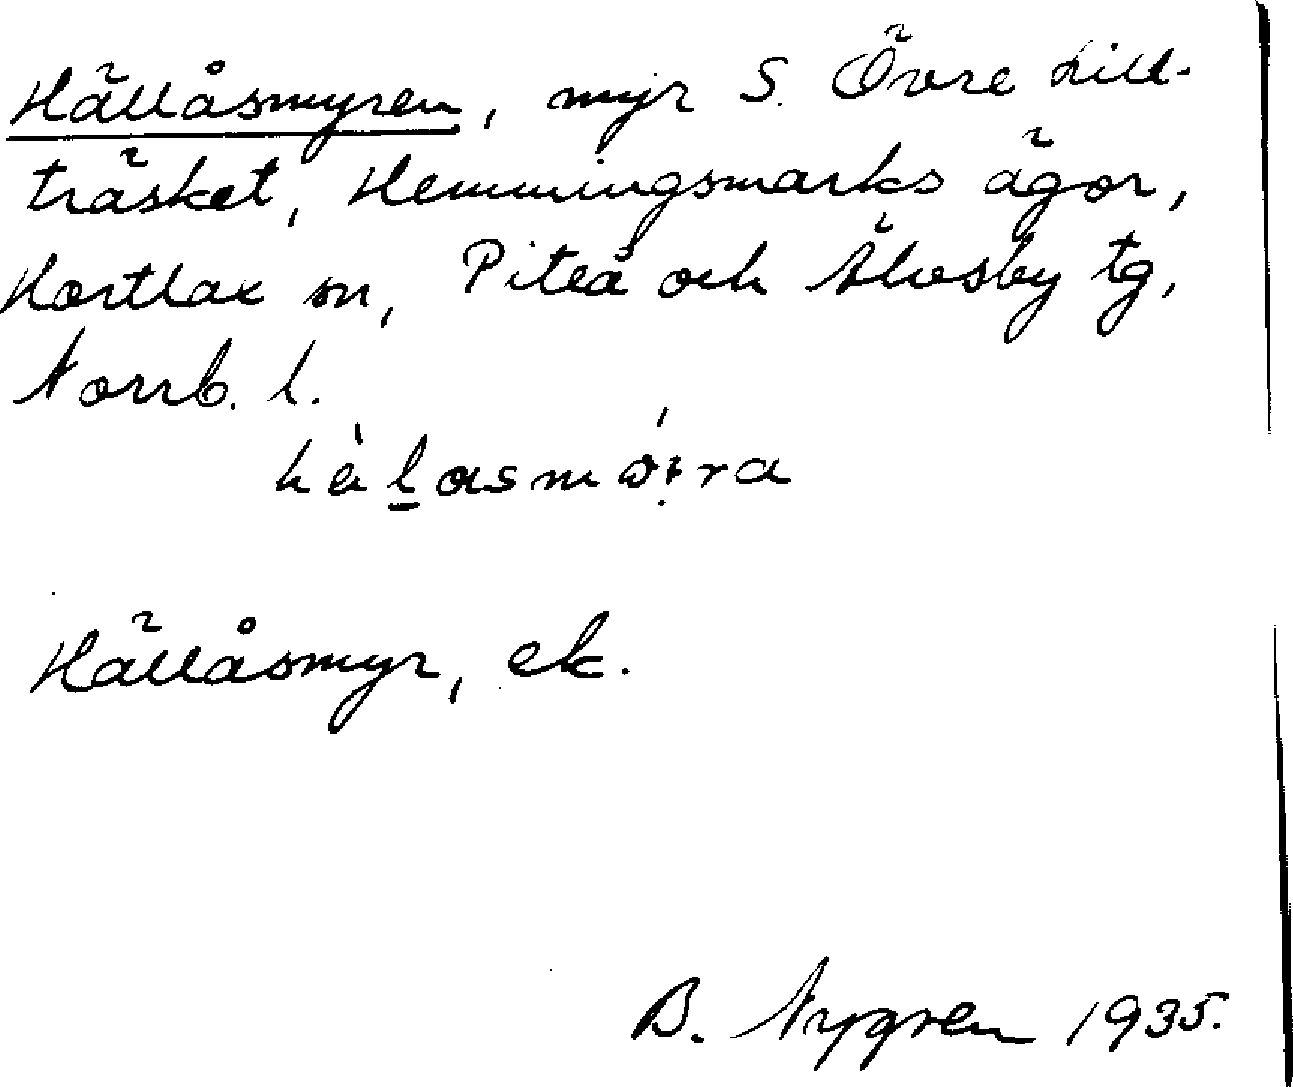 Hällåsmyren, myr S. Övre Lill-
träsket, Hemmingsmarks ägor,
Hortlax sn, Piteå och Älvsby tg,
Norrb. l.
Hällåsmyr, ek.
B. Nygren 1935.